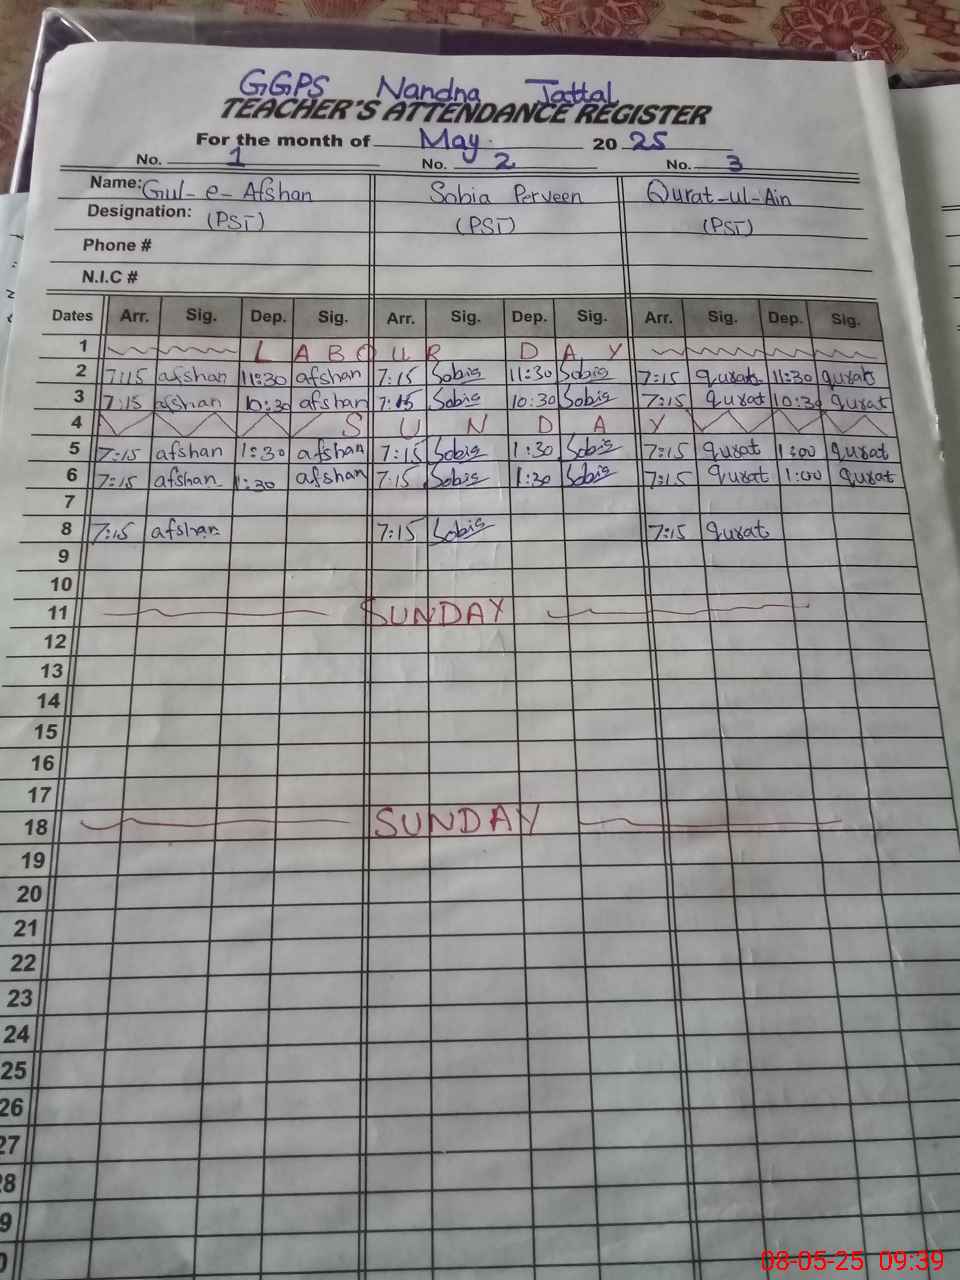 GGPS Nandna Tattal
TEACHER'S ATTENDANCE REGISTER
For the month of May. 2025
No. 1 No. 2 No. 3
Name: Gul-e-Afshan Sobia Perveen Qurat-ul-Ain
Designation: (PST) (PST) (PST)
Phone #
N.I.C #
Dates Arr. Sig. Dep. Sig. Arr. Sig. Dep. Sig. Arr. Sig. Dep. Sig.
1 LABOUR DAY
2 7:15 afshan 11:30 afshan 7:15 Sobia 11:30 Sobia 7:15 qurat 11:30 qurat
3 7:15 afshan 10:30 afshan 7:15 Sobia 10:30 Sobia 7:15 qurat 10:30 qurat
4 SUNDAY
5 7:15 afshan 1:30 afshan 7:15 Sobia 1:30 Sobia 7:15 qurat 1:00 qurat
6 7:15 afshan 1:30 afshan 7:15 Sobia 1:30 Sobia 7:15 qurat 1:00 qurat
7
8 7:15 afshan 7:15 Sobia 7:15 qurat
9
10
11 SUNDAY
12
13
14
15
16
17
18 SUNDAY
19
20
21
22
23
24
25
26
27
28
9
0
08-05-25 09:39